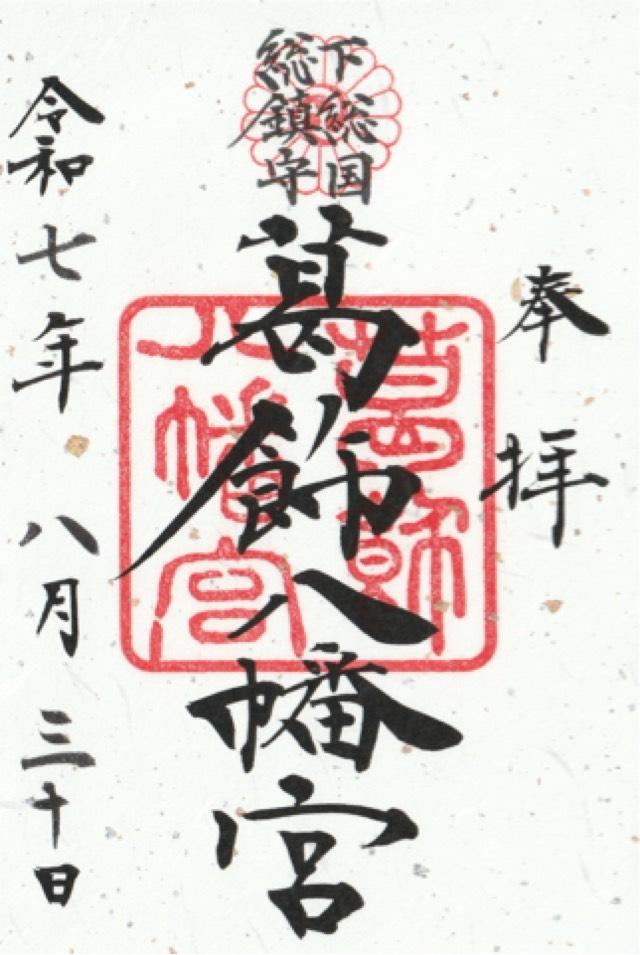 奉拝
下総国
総鎮守
葛飾八幡宮
葛飾
八幡宮
令和七年八月三十日